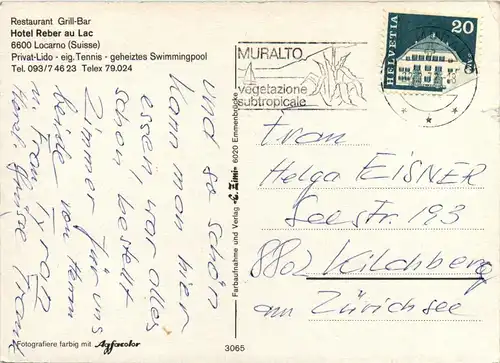 Restaurant Grill-Bar
Hotel Reber au Lac
6600 Locarno (Suisse)
Privat-Lido - eig. Tennis - geheiztes Swimmingpool
Tel. 093/7 46 23 Telex 79.024
und so schön
kann man hier
essen, war alles
schon bestellt
Zimmer für uns
beide von Herrn
u. Frau
Herzl. Grüsse
Fotografiere farbig mit Agfacolor
3065
Farbaufnahme und Verlag 6020 Emmenbrücke
MURALTO
vegetazione
subtropicale
HELVETIA
20
Frau
Helga EISNER
Seestr. 193
8802 Kilchberg
am Zürichsee